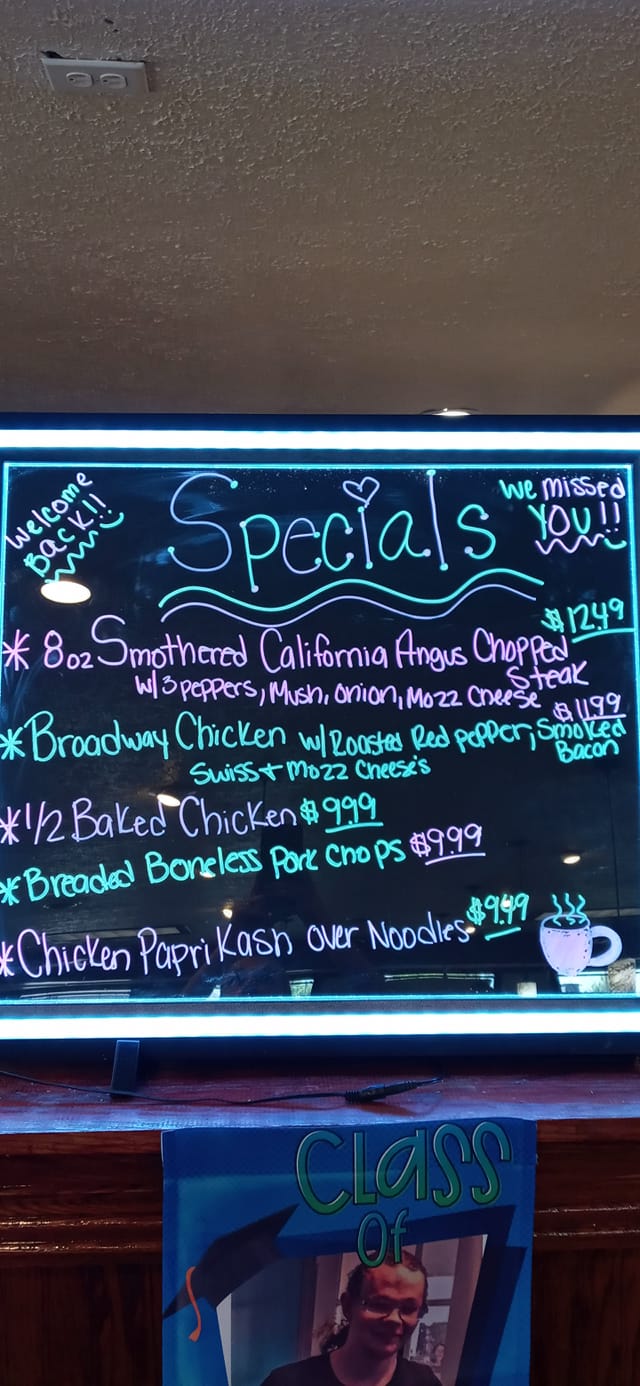 Welcome
Back!!
Specials
We missed
YOU!!
$12.49
* 8oz Smothered California Angus Chopped
Steak
w/ 3 peppers, Mush, onion, Mozz Cheese
$11.99
* Broadway Chicken w/ Roasted Red pepper, Smoked
Bacon
Swiss + Mozz Cheese's
* 1/2 Baked Chicken $9.99
* Breaded Boneless Pork Chops $9.99
* Chicken Paprikash over Noodles $9.49
Class
Of